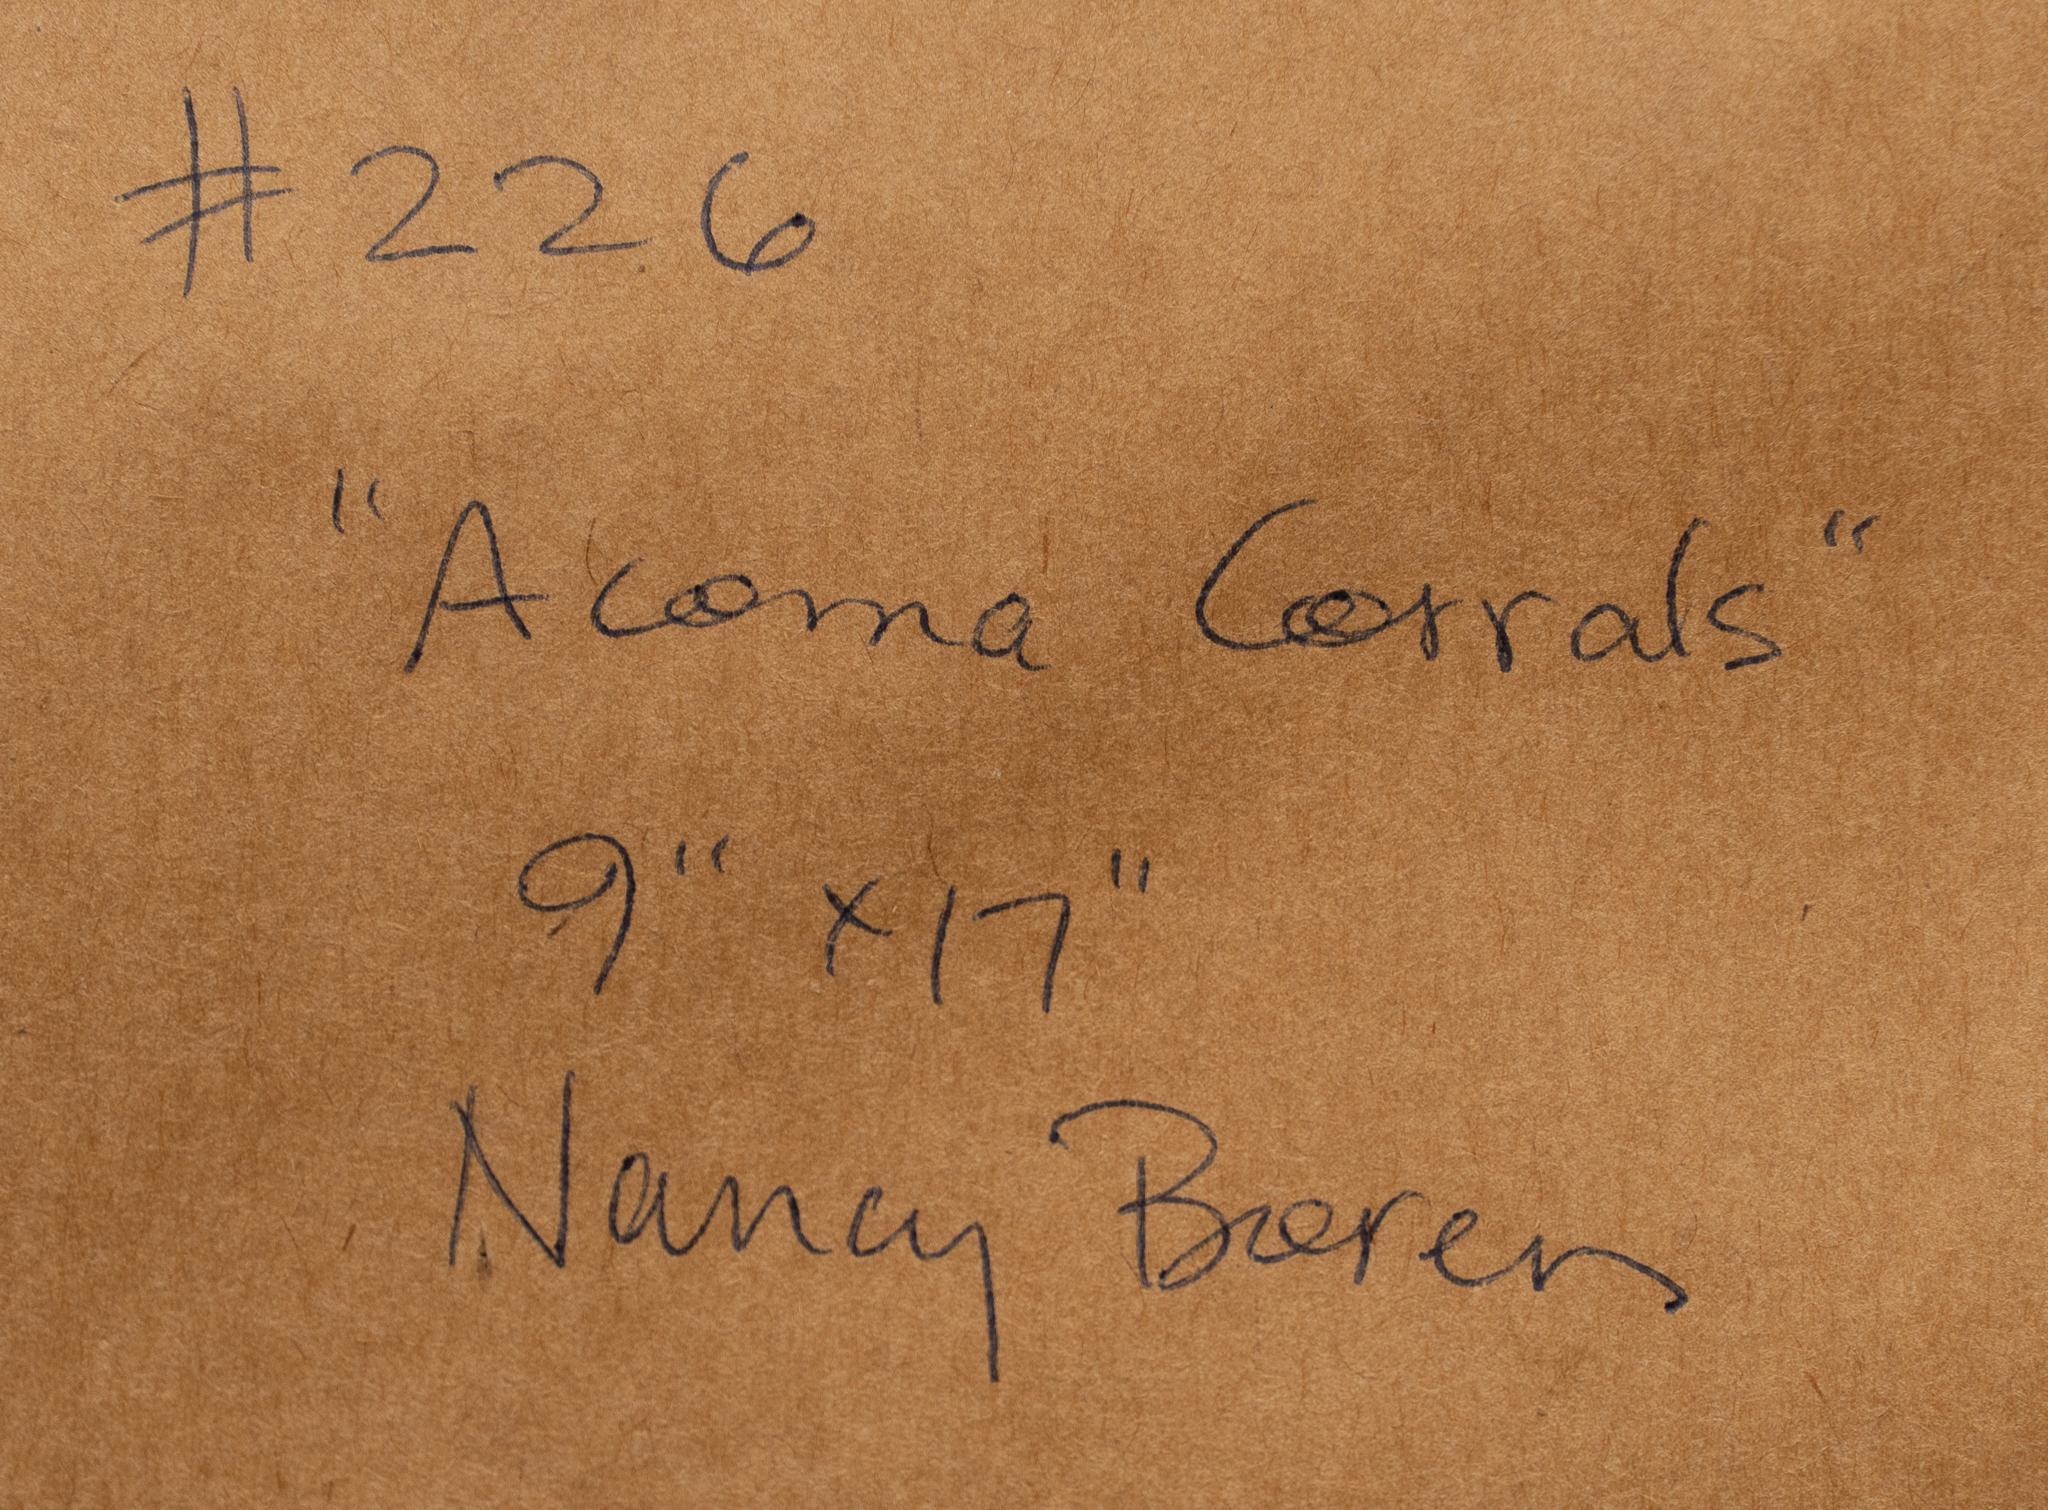 #226
"Acoma Corrals"
9" x 17"
Nancy Boren